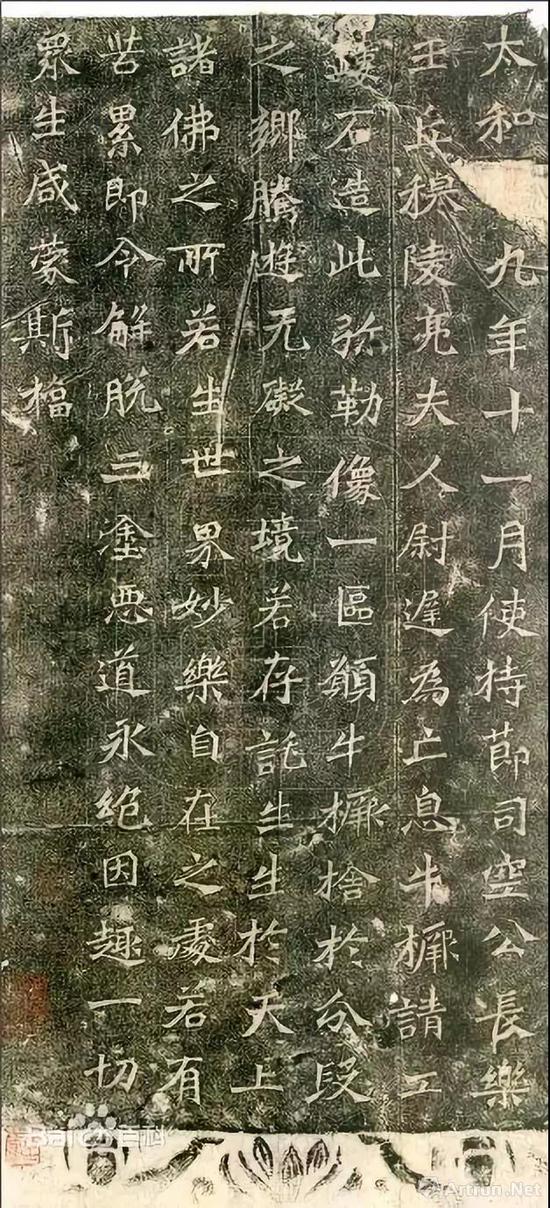 太和九年十一月使持節司空公長樂
王丘穆陵亮夫人尉遲為亡息牛橛請工
鏤石造此弥勒像一區願牛橛捨於分段
之鄉騰遊无礙之境若存託生生於天上
諸佛之所若生世界妙樂自在之處若有
苦累即令解脫三塗惡道永絕因趣一切
眾生咸蒙斯福
Baidu百科
Artron.Net